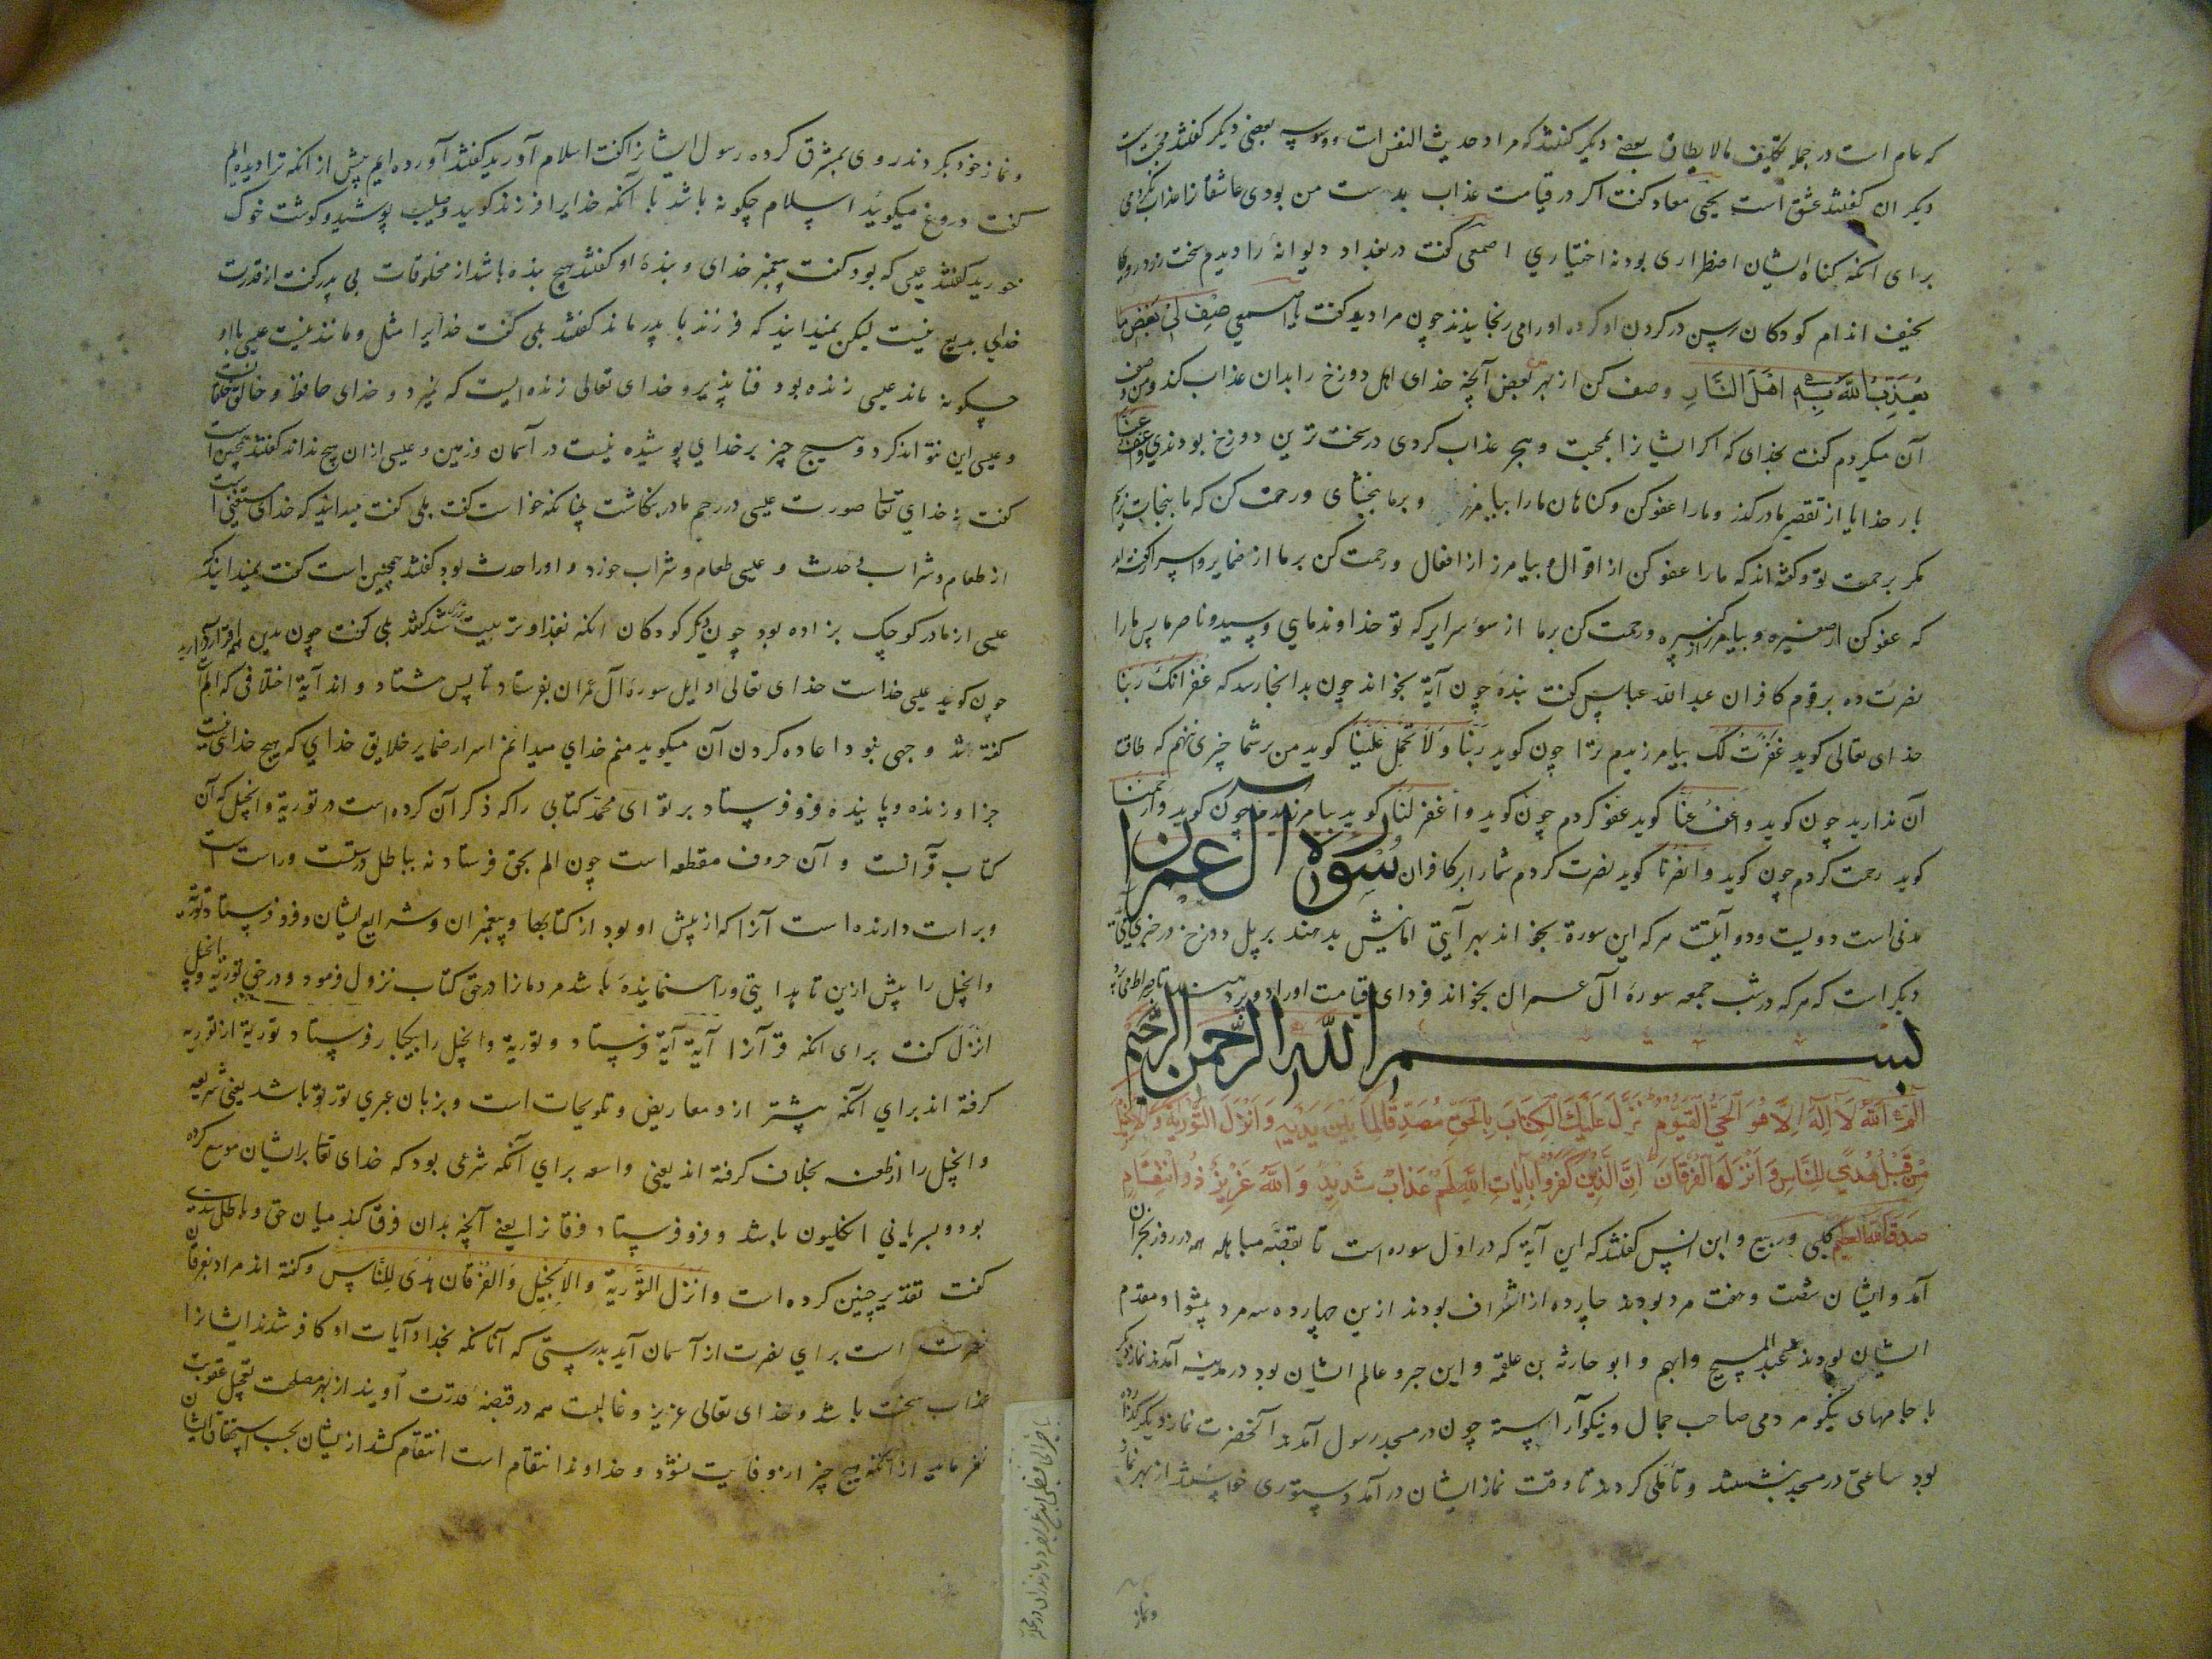 که عام است در جمله تکلیف مالایطاق بعضی دیگر کفتند که مراد حدیث النفس است و وسوسه بعضی دیگر کفتند محبت است
دیگران کفتند عشق است یحیی معاد کفت اکر در قیامت عذاب بدست من بودی عاشقانرا عذاب نکردمی
برای آنکه کناه ایشان اضطراری بود نه اختیاری اصمعی کفت در بغداد دیوانهٔ را دیدم سخت زرد روی
نحیف اندام کودکان رسن در کردن او کرده او را می رنجانیدند چون مرا دید کفت یا اصمعی صف لی بعض ما
یعذب الله به اهل النار وصف کن از بهر من بعض آنچه خدای اهل دوزخ را بدان عذاب کند و من وصف
آن میکردم کفت بخدای که اکر ایشانرا بمحبت و هجر عذاب کردی در سخت ترین دوزخ بودندی واعف عنا
بار خدایا از تقصیر ما در کذر و ما را عفو کن و کناهان ما را بیامرز و بر ما ببخشای و رحمت کن که ما نجات نیابیم
مکر برحمت تو و کفته اند که ما را عفو کن از اقوال و بیامرز از افعال و رحمت کن بر ما از ضمایر و اسرار و کفته اند
که عفو کن از صغیره و بیامرز از کبیره و رحمت کن بر ما از سوٴ سرایر که تو خداوند مایی و سید و ناصر ما پس ما را
نصرت ده بر قوم کافران عبد الله عباس کفت بنده چون آیة بخواند چون بدانجا رسد که غفرانک ربنا
خدای تعالی کوید غفرت لک بیامرزیدم ترا چون کوید ربنا ولا تحمل علینا کوید من بر شما چیزی ننهم که طاقت
آن ندارید چون کوید واعف عنا کوید عفو کردم چون کوید واغفر لنا کوید بیامرزیدم چون کوید وارحمنا
کوید رحمت کردم چون کوید وانصرنا کوید نصرت کردم شما را بر کافران سورة آل عمران
مدنی است دویست و دو آیتست هر که این سورة بخواند بهر آیتی امانیش بدهند بر پل دوزخ در خبری
دیکر است که هر که در شب جمعه سورهٔ آل عمران بخواند فردای قیامت او را دو پر دهند تا بر صراط می پرد
بسم الله الرحمن الرحیم
الم الله لا اله الا هو الحی القیوم نزل علیک الکتاب بالحق مصدقا لما بین یدیه وانزل التوریة والانجیل
من قبل هدی للناس وانزل الفرقان ان الذین کفروا بآیات الله لهم عذاب شدید والله عزیز ذو انتقام
صدق الله العظیم کلبی و ربیع و ابن انس کفتند که این آیة که در اول سوره است تا بقصهٔ مباهله همه در روز نجران
آمد و ایشان شصت و هفت مرد بودند چهارده از اشراف بودند ازین چهارده سه مرد پیشوا و مقدم
ایشان بودند عبد المسیح و ایهم و ابو حارثه بن علقمة و این حبر و عالم ایشان بود در مدینه آمدند نماز دیکر
با جامهای نیکو مردمی صاحب جمال و نیکو آراسته چون در مسجد رسول آمدند آنحضرت نماز دیکر کذارده
بود ساعتی در مسجد بنشستند و تأملی کردند تا وقت نماز ایشان در آمد دستوری خواستند از بهر نماز
و نماز
و نماز خود بکردند روی بمشرق کرده رسول ایشانرا کفت اسلام آورید کفتند آورده ایم پیش از آنکه ترا دیده ایم
کفت دروغ میکوئید اسلام چکونه باشد با آنکه خدایرا فرزند کوئید و صلیب پوشید و کوشت خوک
خورید کفتند عیسی که بود کفت پیغمبر خدای و بندهٔ او کفتند هیچ بنده باشد از مخلوقات بی پدر کفت از قدرت
خدای بدیع نیست لیکن نمیدانید که فرزند با پدر ماند کفتند بلی کفت خدایرا مثل و مانند نیست عیسی با او
چکونه ماند عیسی زنده بود فنا پذیر و خدای تعالی زنده ایست که نمیرد و خدای حافظ و خالق خلقانست
و عیسی این نتواند کرد و هیچ چیز بر خدای پوشیده نیست در آسمان و زمین و عیسی ازان هیچ نداند کفتند همچنین است
کفت نه خدای تعا صورت عیسی در رحم مادر بنکاشت چنانکه خواست کفتند بلی کفت میدانید که خدای مستغنی است
از طعام و شراب و حدث و عیسی طعام و شراب خورد و او را حدث بود کفتند همچنین است کفت نمیدانید که
عیسی از مادر کوچک بزاده بود چون دیگر کودکان آنکه بغذا و تربیت بزرک شد کفتند بلی کفت چون بدین همه اقرار دارید
چون کوئید عیسی خداست خدای تعالی اوایل سورهٔ آل عمران بفرستاد تا پس هشتاد و اند آیة اختلافی که الم
کفته شد و جهی نبود اعاده کردن آن میکوید منم خدای میدانم اسرار ضمایر خلایق خدای که هیچ خدای نیست
جز او زنده و پاینده فرو فرستاد بر تو ای محمد کتابی را که ذکر آن کرده است در توریة و انجیل که آن
کتاب قرآنست و آن حروف مقطعه است چون الم بحق فرستاد نه بباطل درستست و راست است
و براست دارنده است آنرا که از پیش او بود از کتابها و پیغمبران و شرایع ایشان و فرو فرستاد توریة
و انجیل را پیش ازین تا هدایتی و راه نماینده باشد مردمانرا در حق کتاب نزول فرمود و در حق توریة و انجیل
انزل کفت برای آنکه قرآنرا آیة آیة فرستاد و توریة و انجیل را بیکبار فرستاد توریة از توریه
کرفته اند برای آنکه بیشتر ازو معاریض و تلویحات است و بزبان عبری تورتو باشد یعنی شریعه
و انجیل را از طعنه نجلاء کرفته اند یعنی واسعه برای آنکه شرعی بود که خدای تعا بر ایشان موسع کرده
بود و بسریانی انکلیون باشد و فرو فرستاد فرقانرا یعنی آنچه بدان فرق کند میان حق و باطل
کفت تقدیر چنین کرده است وانزل التوریة والانجیل والفرقان هدی للناس و کفته اند مراد بفرقان
نصرت است برای نصرت از آسمان آید بدرستی که آنانکه بخدا و آیات او کافر شدند ایشانرا
عذاب سخت باشد و خدای تعالی عزیز و غالبست همه در قبضهٔ قدرت اویند از بهر مصلحت تعجیل عقوبت
نفرماید از آنکه هیچ چیز ازو فایت نشود و خداوند انتقام است انتقام کشد از یشان بحسب استحقاق ایشان